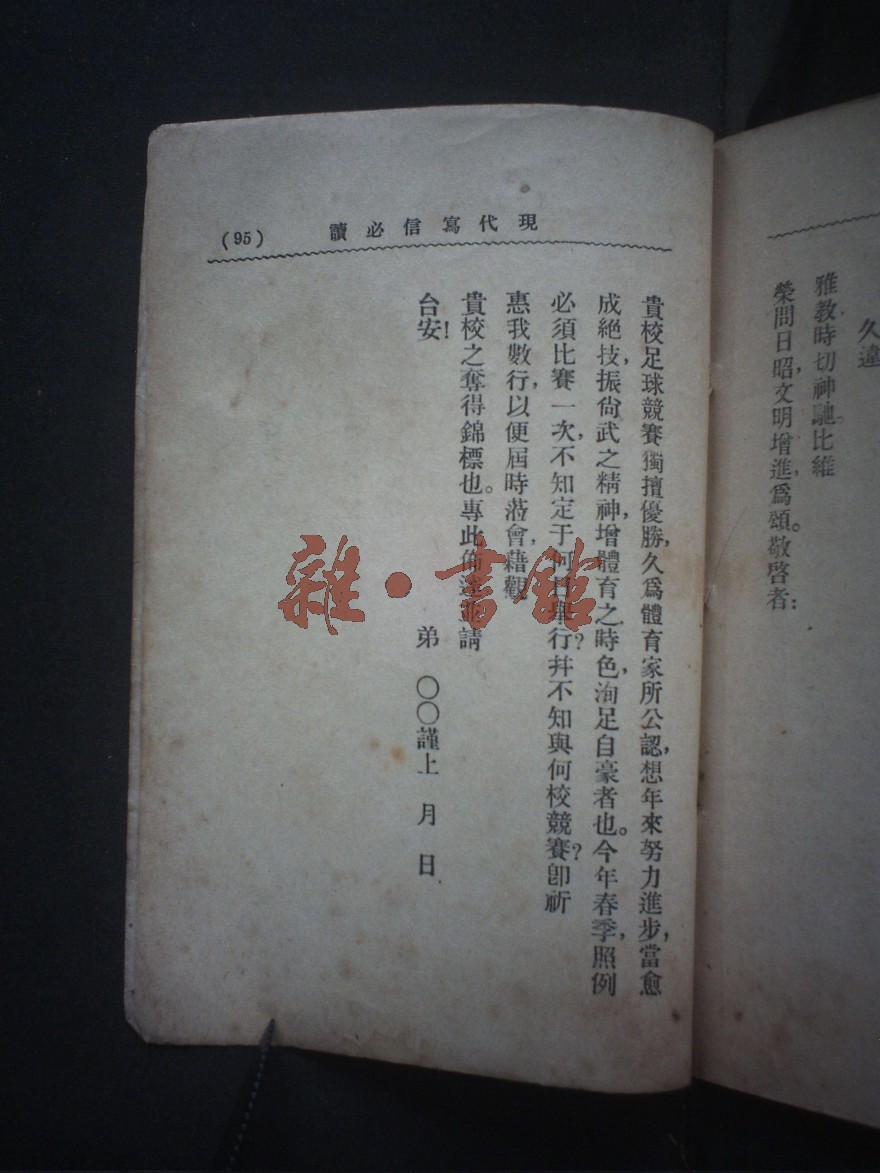 久違
雅教,時切神馳。比維
榮問日昭,文明增進,爲頌。敬啓者:
現代寫信必讀
(95)
貴校足球競賽,獨擅優勝,久爲體育家所公認,想年來努力進步,當愈
成絕技,振尙武之精神,增體育之時色,洵足自豪者也。今年春季,照例
必須比賽一次,不知定于何日舉行?幷不知與何校競賽?卽祈
惠我數行,以便屆時蒞會,藉觀
貴校之奪得錦標也。專此佈達並請
台安!
弟 〇〇謹上 月 日
雜·書館